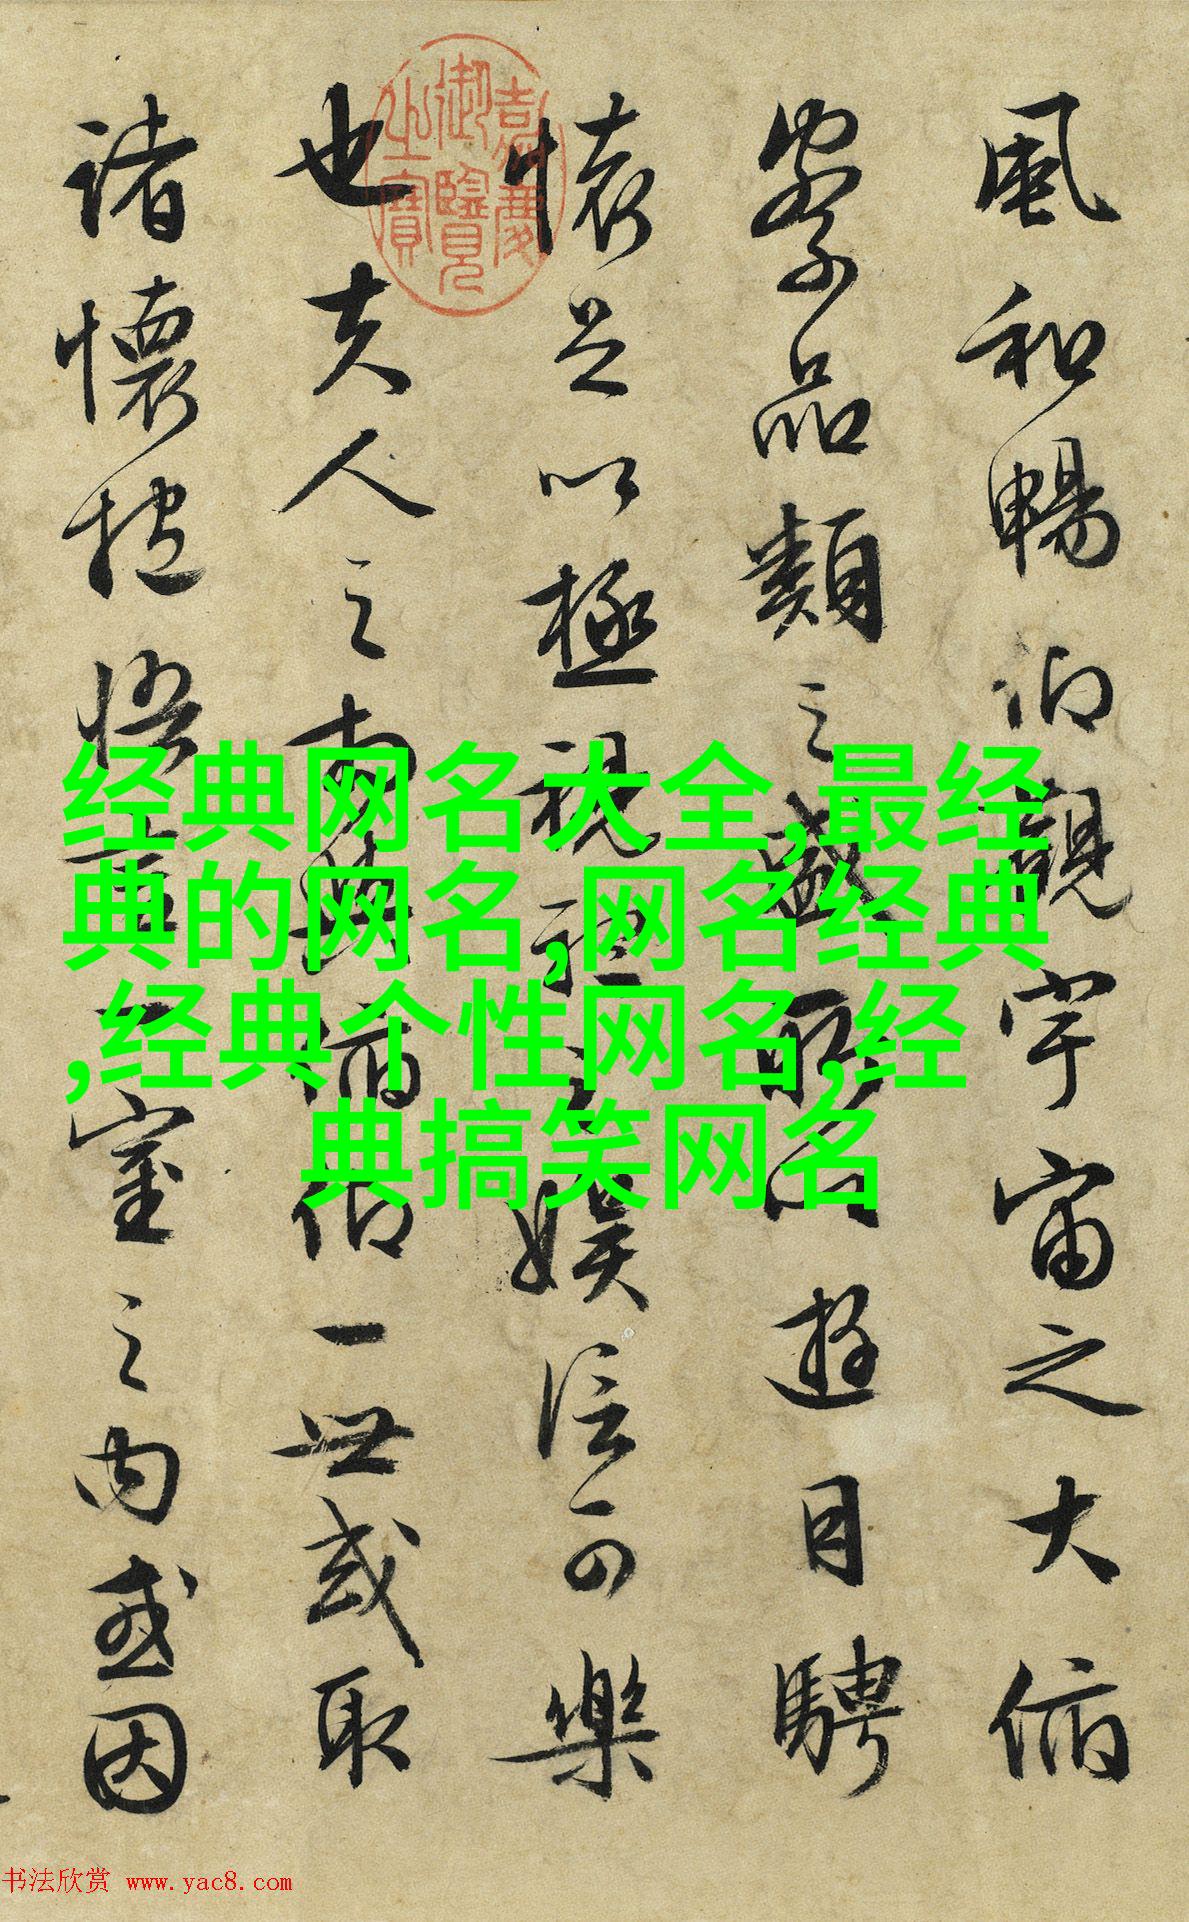 風和暢仰觀宇宙之大俯
察品類之盛所以遊目騁
懷足以極視聽之娛信可樂
也夫人之相與俯仰一世或取
諸懷抱悟言一室之內或因
嘉慶御覽之寶
经典网名大全,最经
典的网名,网名经典
,经典个性网名,经
典搞笑网名
书法欣赏 www.yac8.com